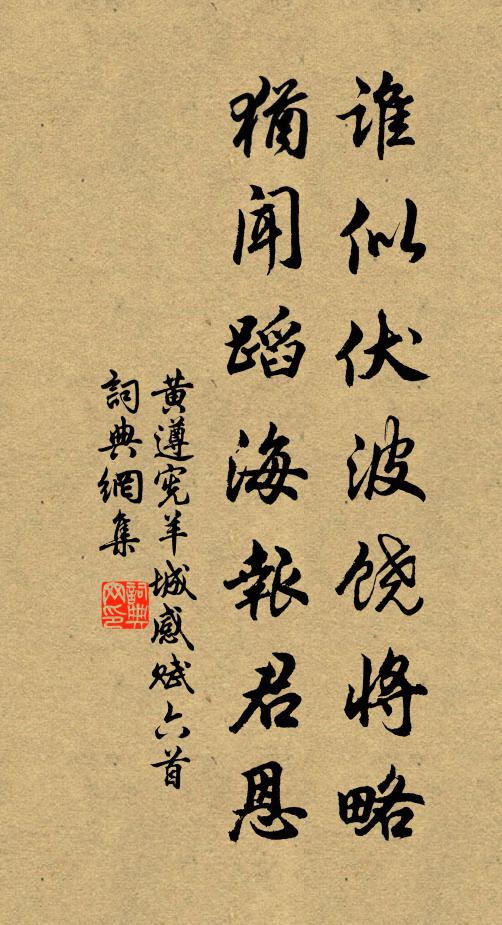 谁似伏波饶将略
犹闻蹈海报君恩
黄遵宪羊城感赋六首
词典网集
詞典网印